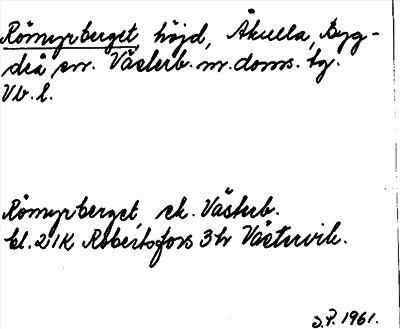 Römyrberget, höjd, Åkulla, Byg-
deå sn. Västerb. m. doms. tg.
Vb. l.
Römyrberget, ek. Västerb.
bl. 21K Robertsfors 3h Västervik.
S.P. 1961.